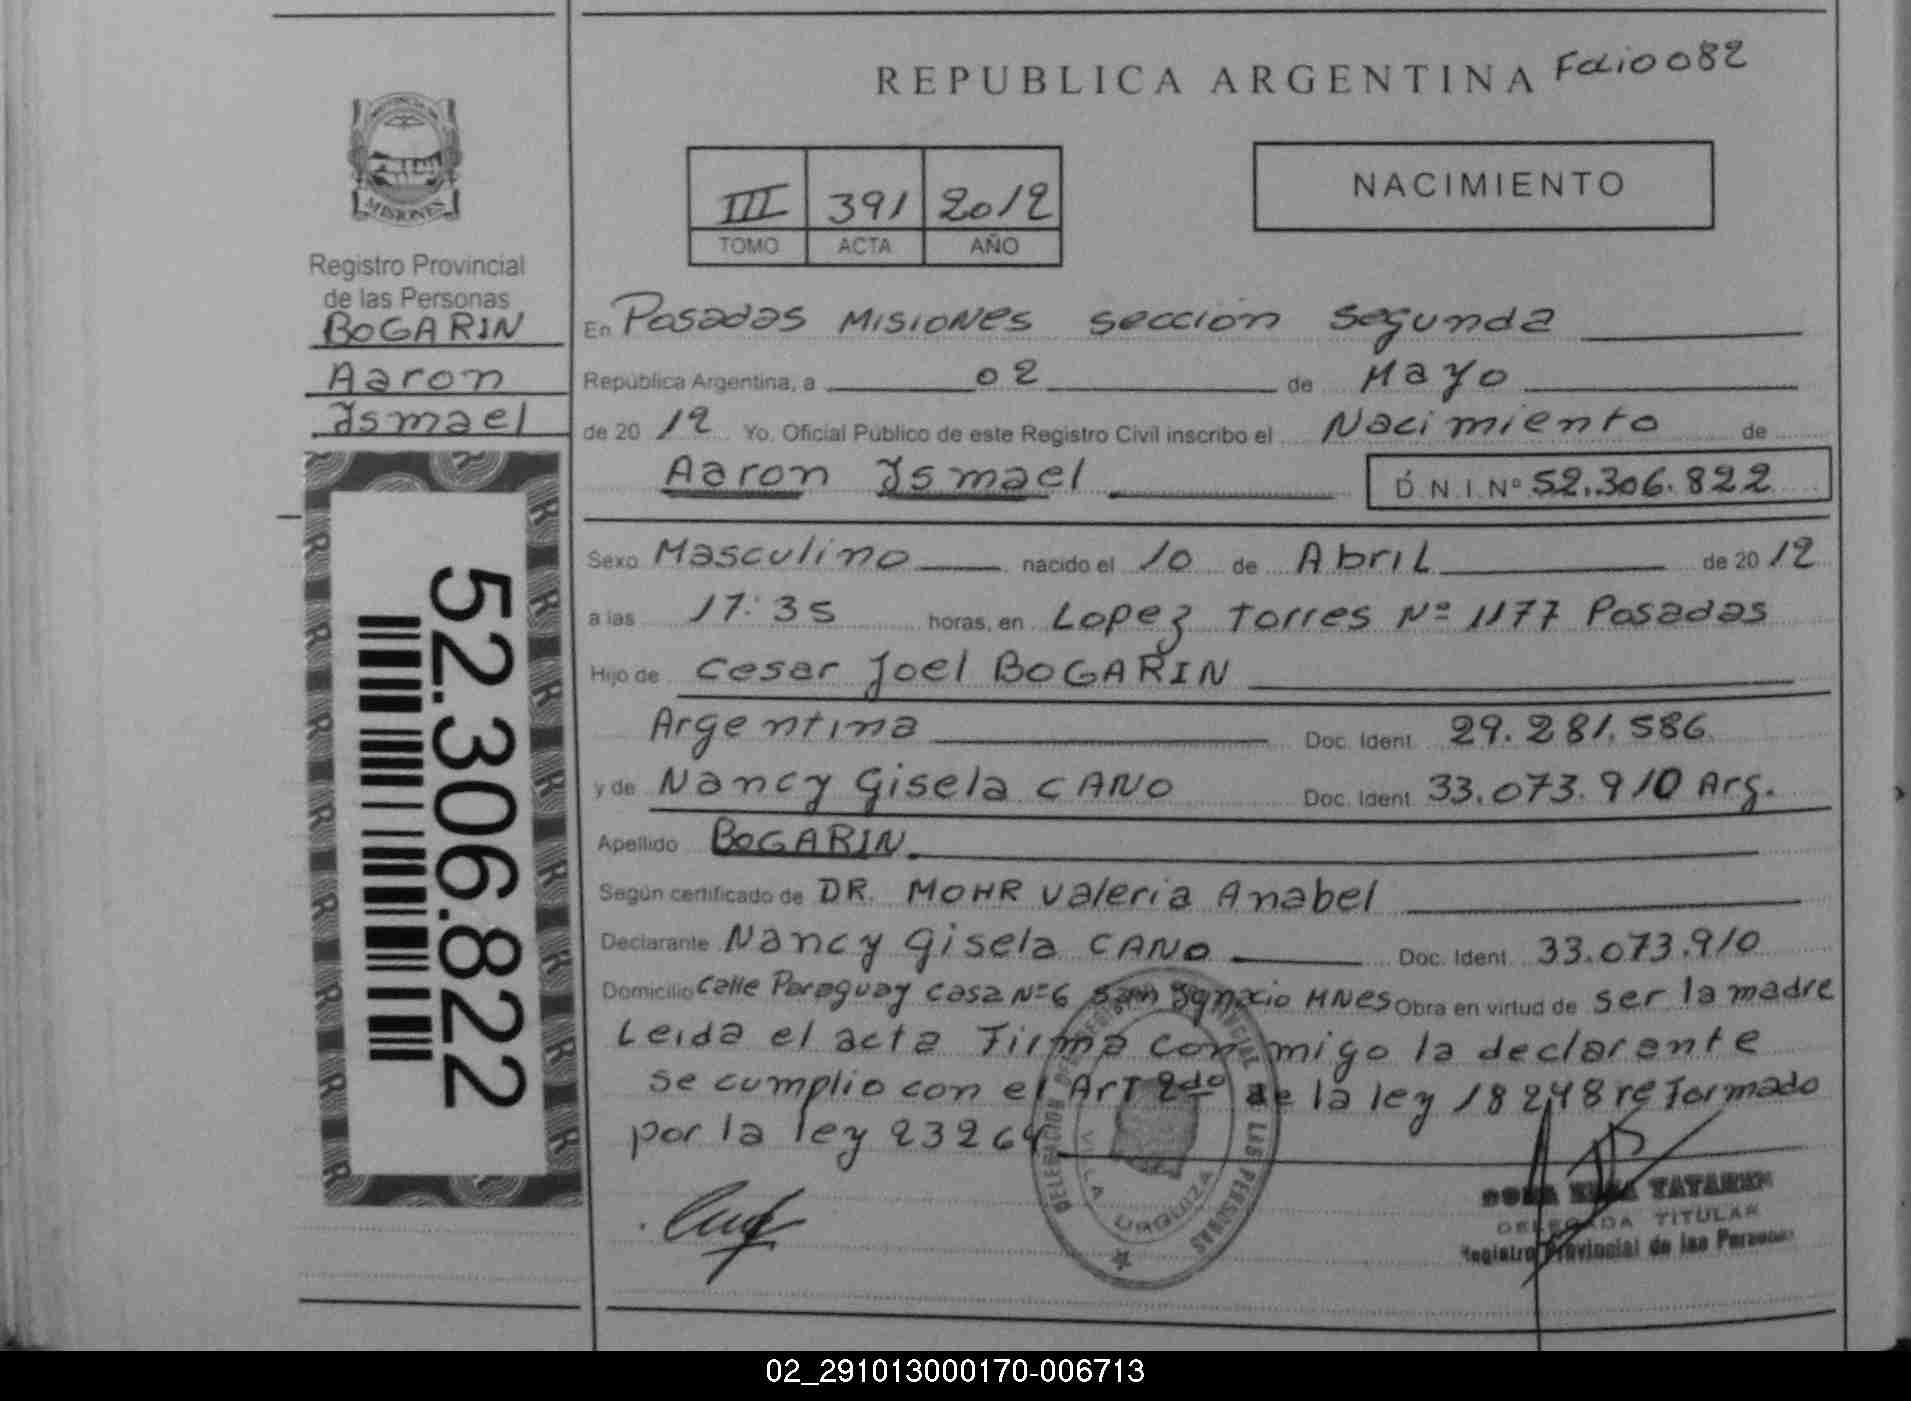 REPUBLICA ARGENTINA Folio 082
PROVINCIA DE
MISIONES
Registro Provincial
de las Personas
BOGARIN
Aaron
Ismael
52.306.822
III 391 2012
TOMO ACTA AÑO
NACIMIENTO
En Posadas Misiones sección segunda
República Argentina, a 02 de Mayo
de 20 12 Yo, Oficial Público de este Registro Civil inscribo el Nacimiento de
Aaron Ismael D.N.I.Nº 52.306.822
Sexo Masculino nacido el 10 de Abril de 20 12
a las 17:35 horas, en Lopez Torres Nº 1177 Posadas
Hijo de Cesar Joel BOGARIN
Argentina Doc. Ident. 29.281.586
y de Nancy Gisela CANO Doc. Ident. 33.073.910 Arg.
Apellido BOGARIN
Según certificado de DR. MOHR Valeria Anabel
Declarante Nancy Gisela CANO Doc. Ident. 33.073.910
Domicilio Calle Paraguay casa Nº 6 San Ignacio MNES Obra en virtud de ser la madre
Leida el acta Firma conmigo la declarante
se cumplio con el Art 2do de la ley 18248 reformado
por la ley 23264
VILLA URQUIZA
DELEGADA TITULAR
Registro Provincial de las Personas
02_291013000170-006713